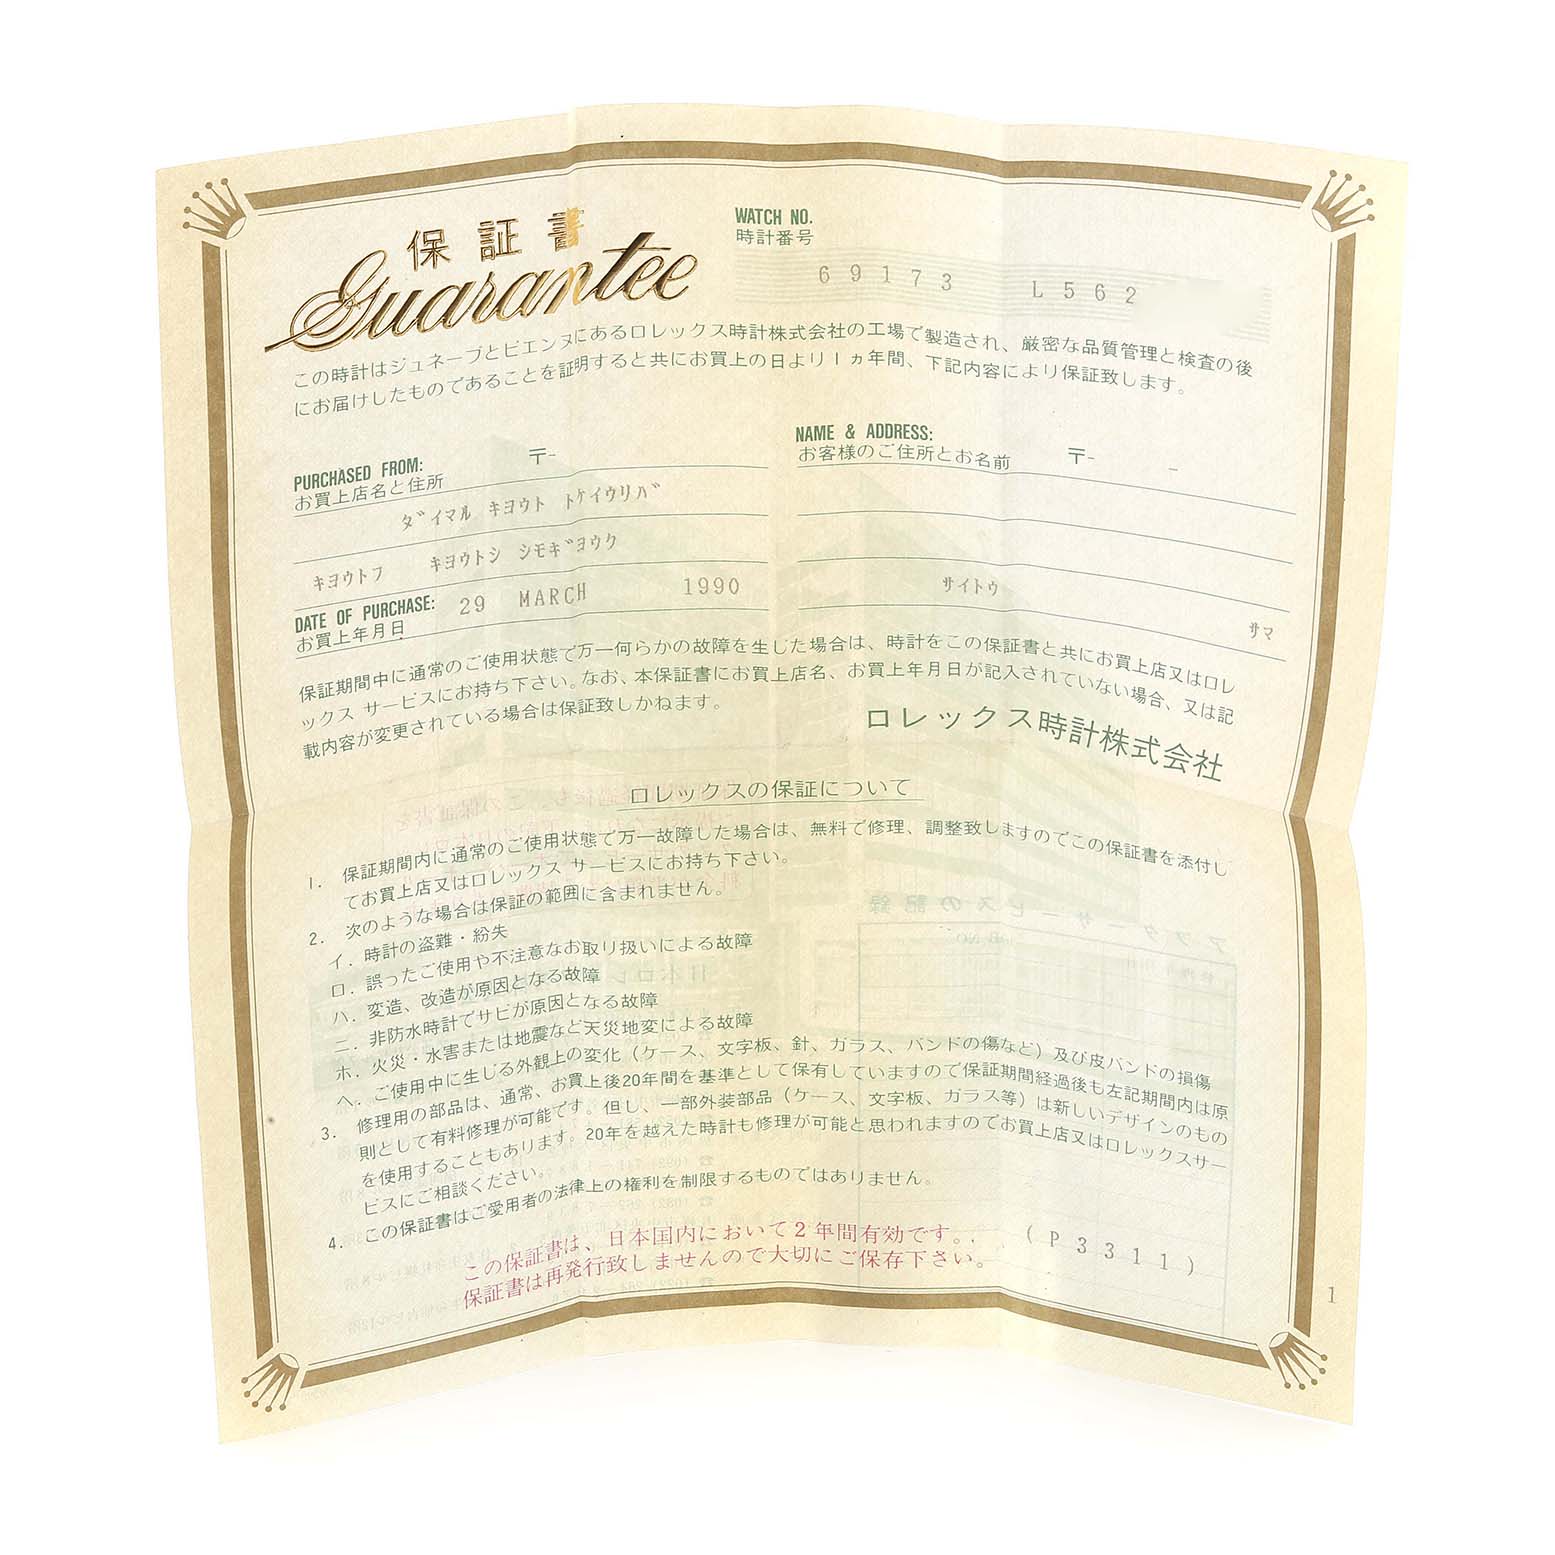 保証書
Guarantee
WATCH NO.
時計番号
69173 L562
この時計はジュネーブとビエンヌにあるロレックス時計株式会社の工場で製造され、厳密な品質管理と検査の後
にお届けしたものであることを証明すると共にお買上の日より1ヵ年間、下記内容により保証致します。
PURCHASED FROM: 〒-
お買上店名と住所
ダイマル キヨウト トケイウリバ
キヨウトフ キヨウトシ シモギヨウク
DATE OF PURCHASE: 29 MARCH 1990
お買上年月日
NAME & ADDRESS:
お客様のご住所とお名前 〒- -
サイトウ
サマ
保証期間中に通常のご使用状態で万一何らかの故障を生じた場合は、時計をこの保証書と共にお買上店又はロレ
ックス サービスにお持ち下さい。なお、本保証書にお買上店名、お買上年月日が記入されていない場合、又は記
載内容が変更されている場合は保証致しかねます。
ロレックス時計株式会社
ロレックスの保証について
1. 保証期間内に通常のご使用状態で万一故障した場合は、無料で修理、調整致しますのでこの保証書を添付し
てお買上店又はロレックス サービスにお持ち下さい。
2. 次のような場合は保証の範囲に含まれません。
イ. 時計の盗難・紛失
ロ. 誤ったご使用や不注意なお取り扱いによる故障
ハ. 変造、改造が原因となる故障
ニ. 非防水時計でサビが原因となる故障
ホ. 火災・水害または地震など天災地変による故障
ヘ. ご使用中に生じる外観上の変化（ケース、文字板、針、ガラス、バンドの傷など）及び皮バンドの損傷
3. 修理用の部品は、通常、お買上後20年間を基準として保有していますので保証期間経過後も左記期間内は原
則として有料修理が可能です。但し、一部外装部品（ケース、文字板、ガラス等）は新しいデザインのもの
を使用することもあります。20年を越えた時計も修理が可能と思われますのでお買上店又はロレックスサー
ビスにご相談ください。
4. この保証書はご愛用者の法律上の権利を制限するものではありません。
この保証書は、日本国内において2年間有効です。
保証書は再発行致しませんので大切にご保存下さい。
(P3311)
1